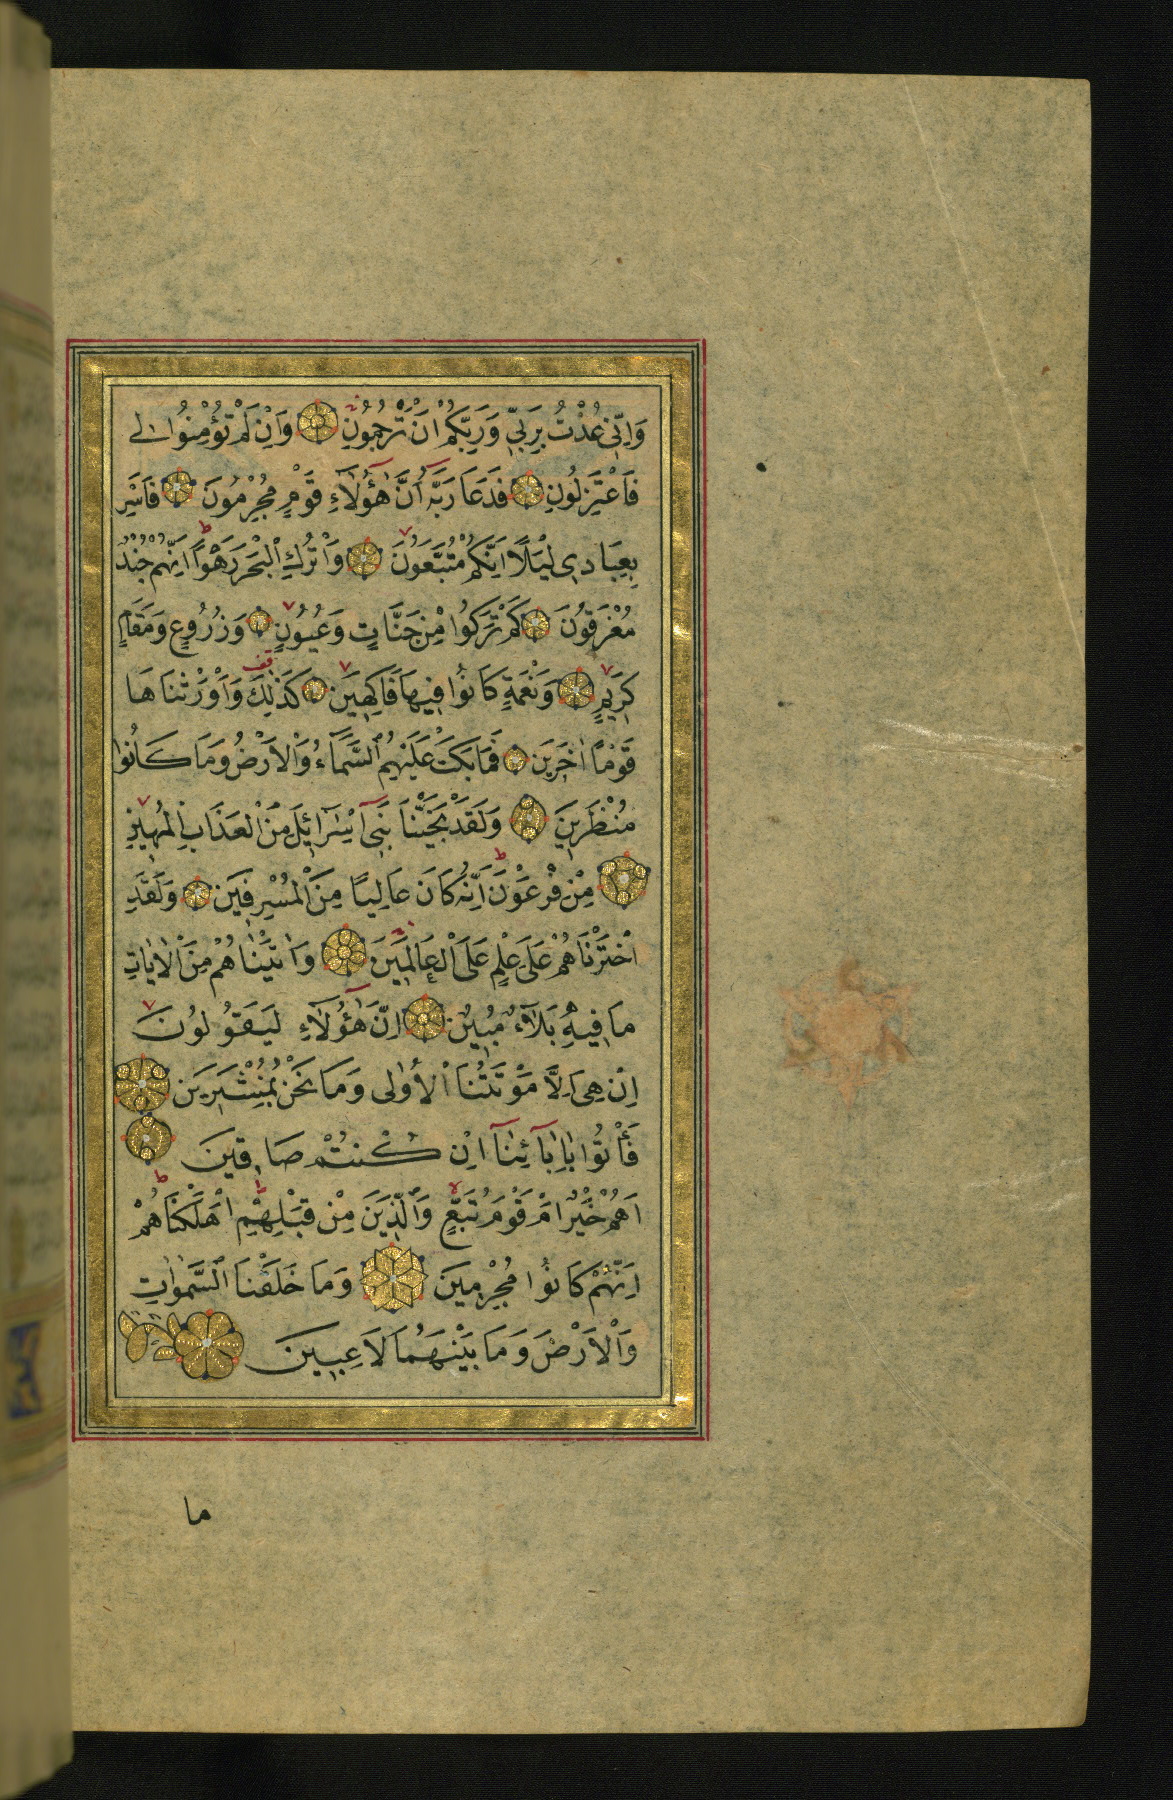 وَاِنّٖى عُذْتُ بِرَبّٖى وَرَبِّكُمْ اَنْ تَرْجُمُونِ وَاِنْ لَمْ تُؤْمِنُوا لٖى
فَاعْتَزِلُونِ فَدَعَا رَبَّهُٓ اَنَّ هٰٓؤُلَٓاءِ قَوْمٌ مُجْرِمُونَ فَاَسْرِ
بِعِبَادٖى لَيْلًا اِنَّكُمْ مُتَّبَعُونَ وَاتْرُكِ الْبَحْرَ رَهْوًا اِنَّهُمْ جُنْدٌ
مُغْرَقُونَ كَمْ تَرَكُوا مِنْ جَنَّاتٍ وَعُيُونٍ وَزُرُوعٍ وَمَقَامٍ
كَرٖيمٍ وَنَعْمَةٍ كَانُوا فٖيهَا فَاكِهٖينَ كَذٰلِكَ وَاَوْرَثْنَاهَا
قَوْمًا اٰخَرٖينَ فَمَا بَكَتْ عَلَيْهِمُ السَّمَٓاءُ وَالْاَرْضُ وَمَا كَانُوا
مُنْظَرٖينَ وَلَقَدْ نَجَّيْنَا بَنٖٓى اِسْرَٓائٖلَ مِنَ الْعَذَابِ الْمُهٖينِ
مِنْ فِرْعَوْنَ اِنَّهُ كَانَ عَالِيًا مِنَ الْمُسْرِفٖينَ وَلَقَدِ
اخْتَرْنَاهُمْ عَلٰى عِلْمٍ عَلَى الْعَالَمٖينَ وَاٰتَيْنَاهُمْ مِنَ الْاٰيَاتِ
مَا فٖيهِ بَلٰٓؤٌا مُبٖينٌ اِنَّ هٰٓؤُلَٓاءِ لَيَقُولُونَ
اِنْ هِىَ اِلَّا مَوْتَتُنَا الْاُولٰى وَمَا نَحْنُ بِمُنْشَرٖينَ
فَأْتُوا بِاٰبَٓائِنَٓا اِنْ كُنْتُمْ صَادِقٖينَ
اَهُمْ خَيْرٌ اَمْ قَوْمُ تُبَّعٍ وَالَّذٖينَ مِنْ قَبْلِهِمْ اَهْلَكْنَاهُمْ
اِنَّهُمْ كَانُوا مُجْرِمٖينَ وَمَا خَلَقْنَا السَّمٰوَاتِ
وَالْاَرْضَ وَمَا بَيْنَهُمَا لَاعِبٖينَ
ما